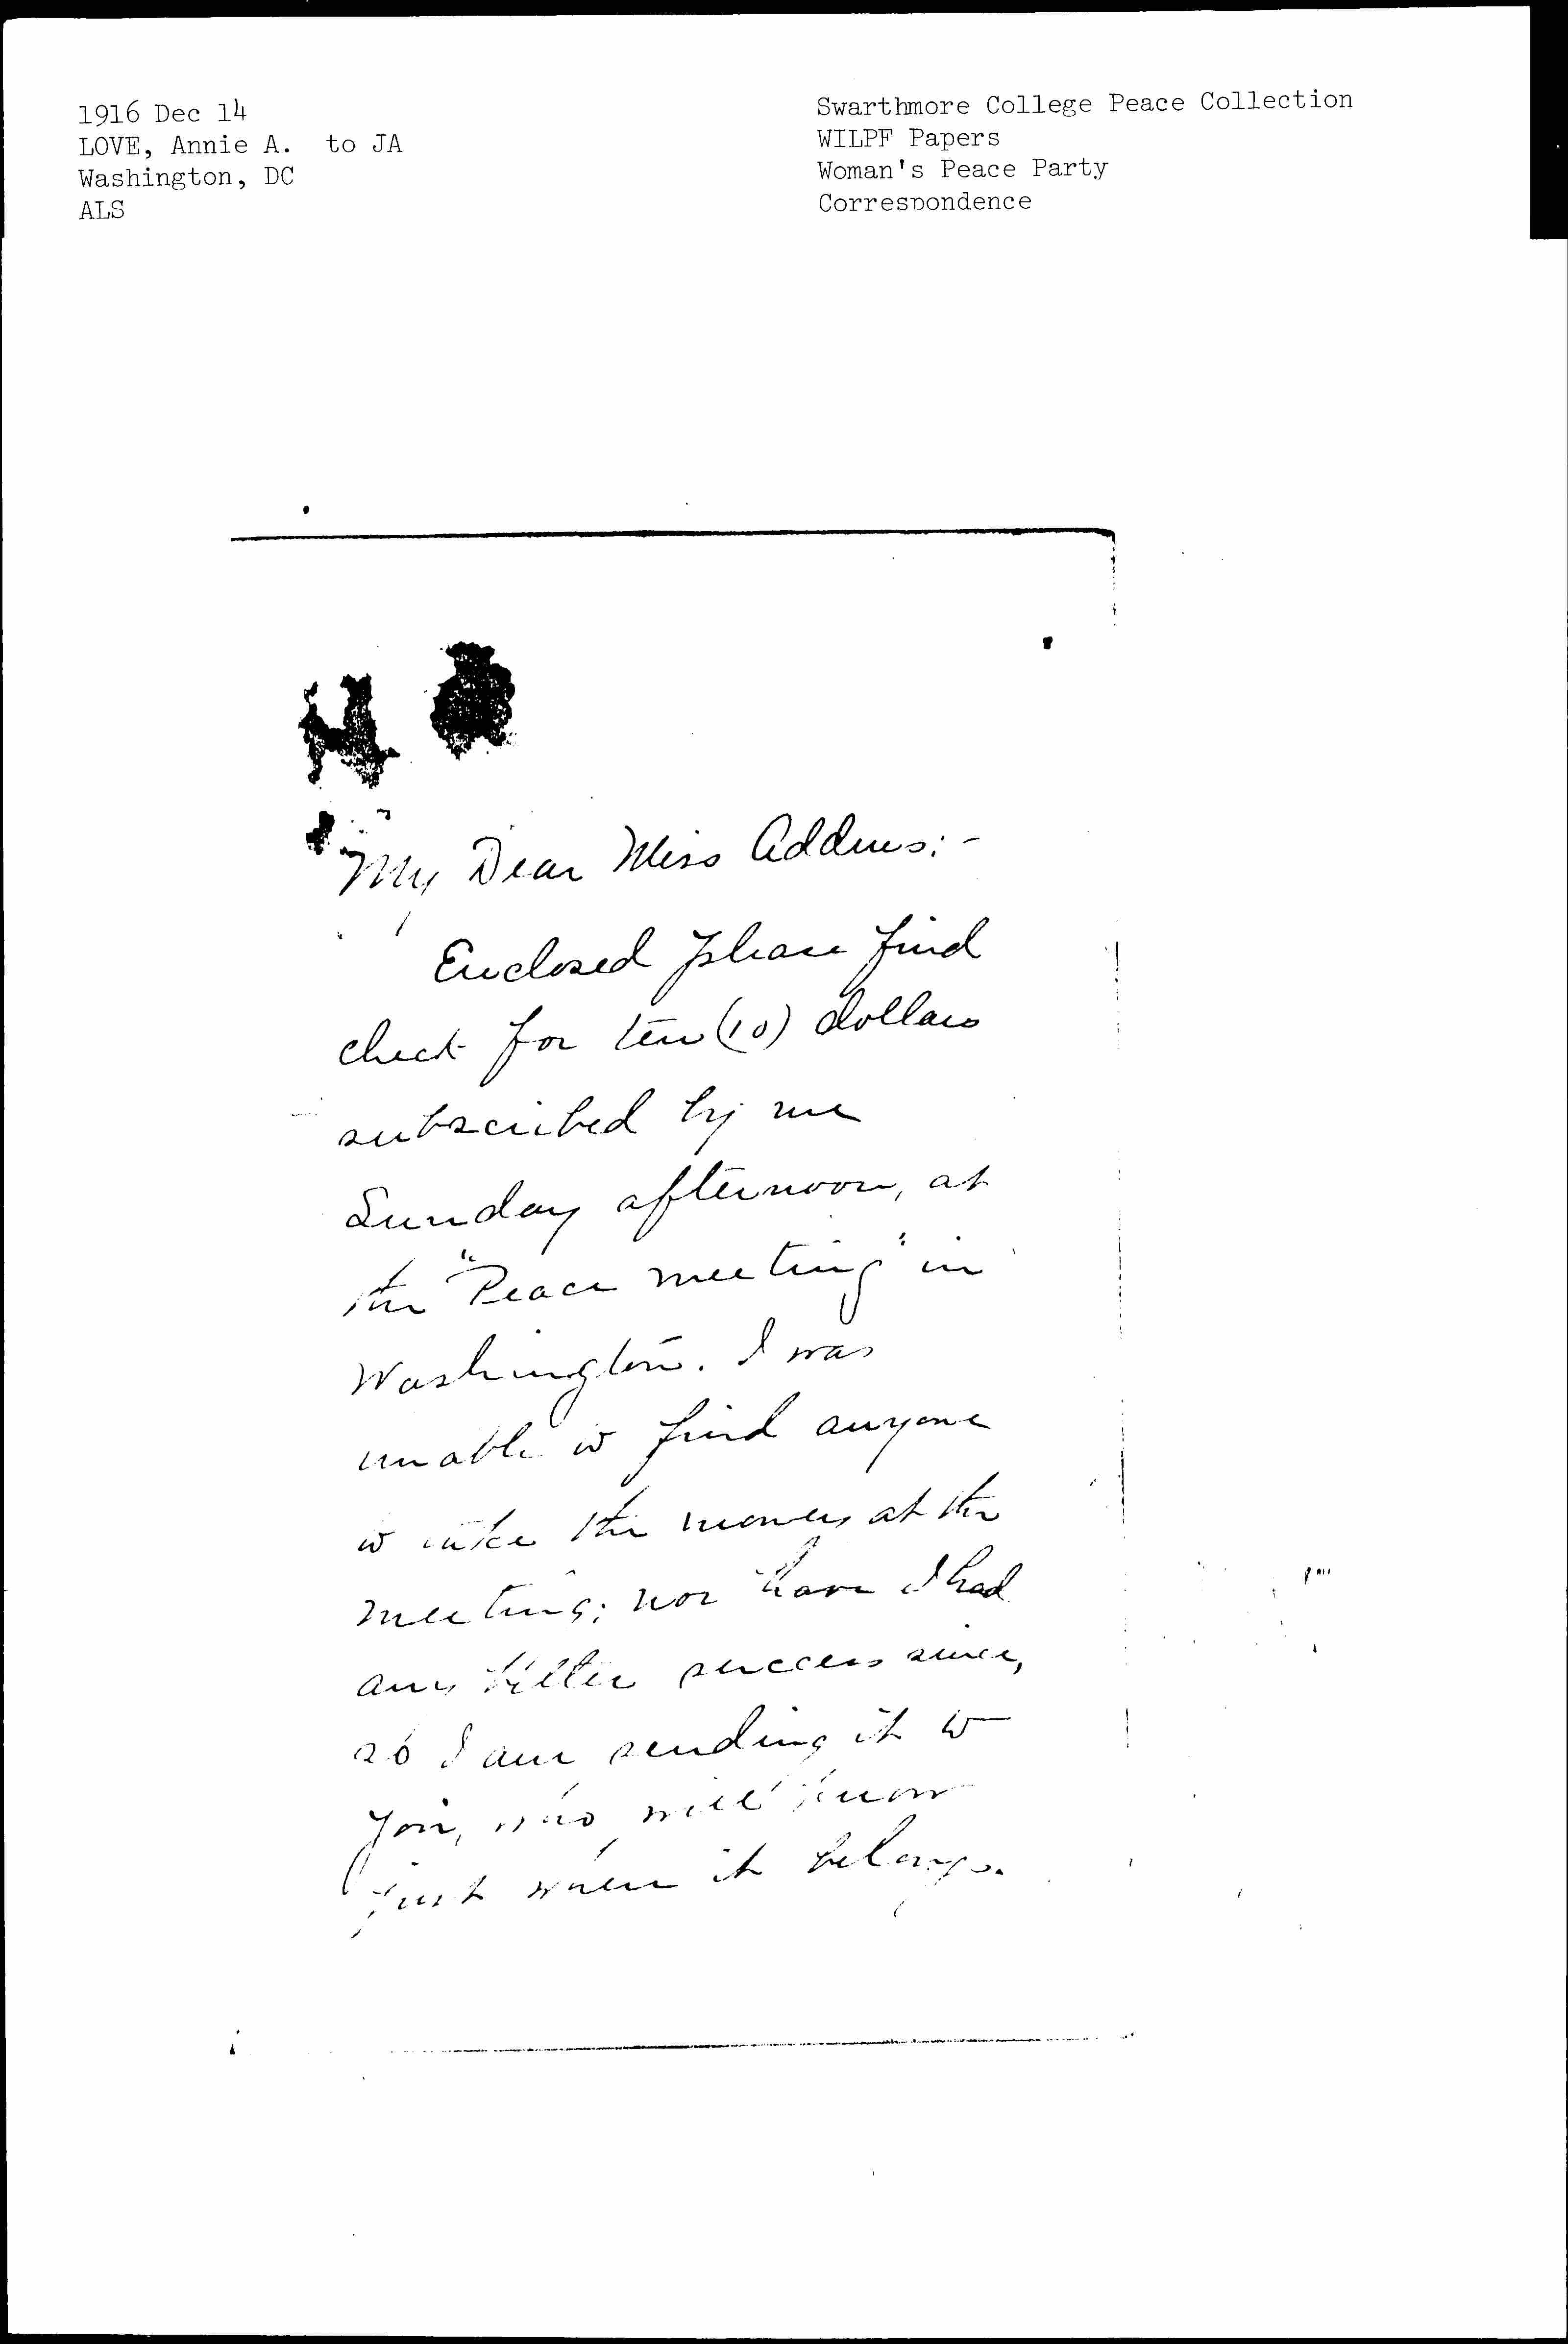 1916 Dec 14
LOVE, Annie A. to JA
Washington, DC
ALS
Swarthmore College Peace Collection
WILPF Papers
Woman's Peace Party
Correspondence
My Dear Miss Addams:-
Enclosed please find
check for ten (10) dollars
subscribed by me
Sunday afternoon, at
the "Peace meeting" in
Washington. I was
unable to find anyone
to take the money at the
meeting; nor have I had
any better success since,
so I am sending it to
you, who will know
just where it belongs.